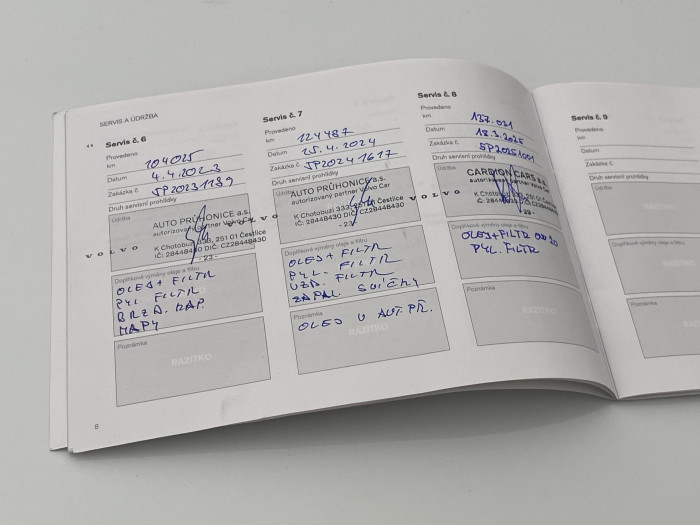 SERVIS A ÚDRŽBA
Servis č. 6
Provedeno
km 104025
Datum 4.4.2023
Zakázka č. SP20231189
Druh servisní prohlídky
Údržba
AUTO PRŮHONICE a.s.
autorizovaný partner Volvo Car
K Chotobuzi 333, 251 01 Čestlice
IČ: 28448430 DIČ: CZ28448430
- 23 -
VOLVO
Doplňkové výměny oleje a filtru
OLEJ + FILTR
PYL. FILTR
BRZD. KAP.
MAPY
Poznámka
RAZÍTKO
8
Servis č. 7
Provedeno
km 124487
Datum 25.4.2024
Zakázka č. SP20241617
Druh servisní prohlídky
Údržba
AUTO PRŮHONICE a.s.
autorizovaný partner Volvo Car
K Chotobuzi 333, 251 01 Čestlice
IČ: 28448430 DIČ: CZ28448430
- 23 -
VOLVO
Doplňkové výměny oleje a filtru
OLEJ + FILTR
PYL. FILTR
VZD. FILTR
ZAPAL. SVÍČKY
Poznámka
OLEJ V AUT. PŘ.
RAZÍTKO
Servis č. 8
Provedeno
km 137.021
Datum 18.3.2025
Zakázka č. SP20251001
Druh servisní prohlídky
Údržba
CARDION CARS
VOLVO
Doplňkové výměny oleje a filtru
OLEJ + FILTR 0W20
PYL. FILTR
Poznámka
Servis č. 9
Provedeno
km
Datum
Zakázka č.
Druh servisní prohlídky
Údržba
Doplňkové výměny oleje a filtru
Poznámka